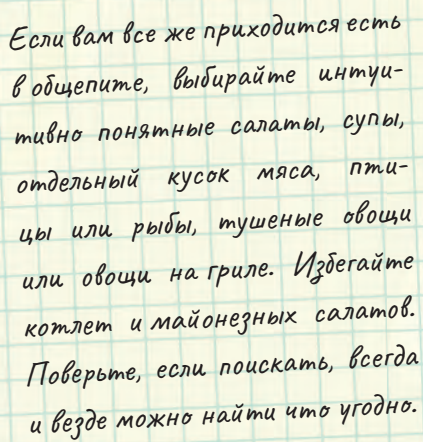 Если вам все же приходится есть
в общепите, выбирайте интуи-
тивно понятные салаты, супы,
отдельный кусок мяса, пти-
цы или рыбы, тушеные овощи
или овощи на гриле. Избегайте
котлет и майонезных салатов.
Поверьте, если поискать, всегда
и везде можно найти что угодно.